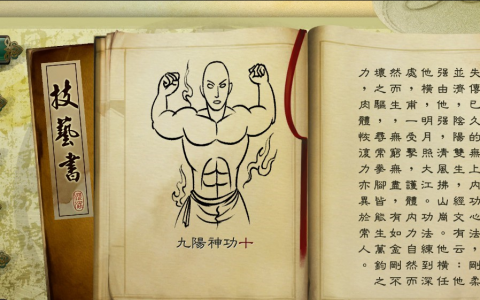 技藝書
九陽神功十
失傳已久的無上內功心法，剛
並濟，陰陽雙生，經文有云：他柔
強由他強，清風拂山崗。他橫任
他橫，明月照大江。功法練到深
處，甫一受擊，護體內力自然而
然而生，無窮無盡，有如金剛不
壞之軀，尋常拳腳皆能生萬鈞之
力，肉體恢復力亦異於常人。